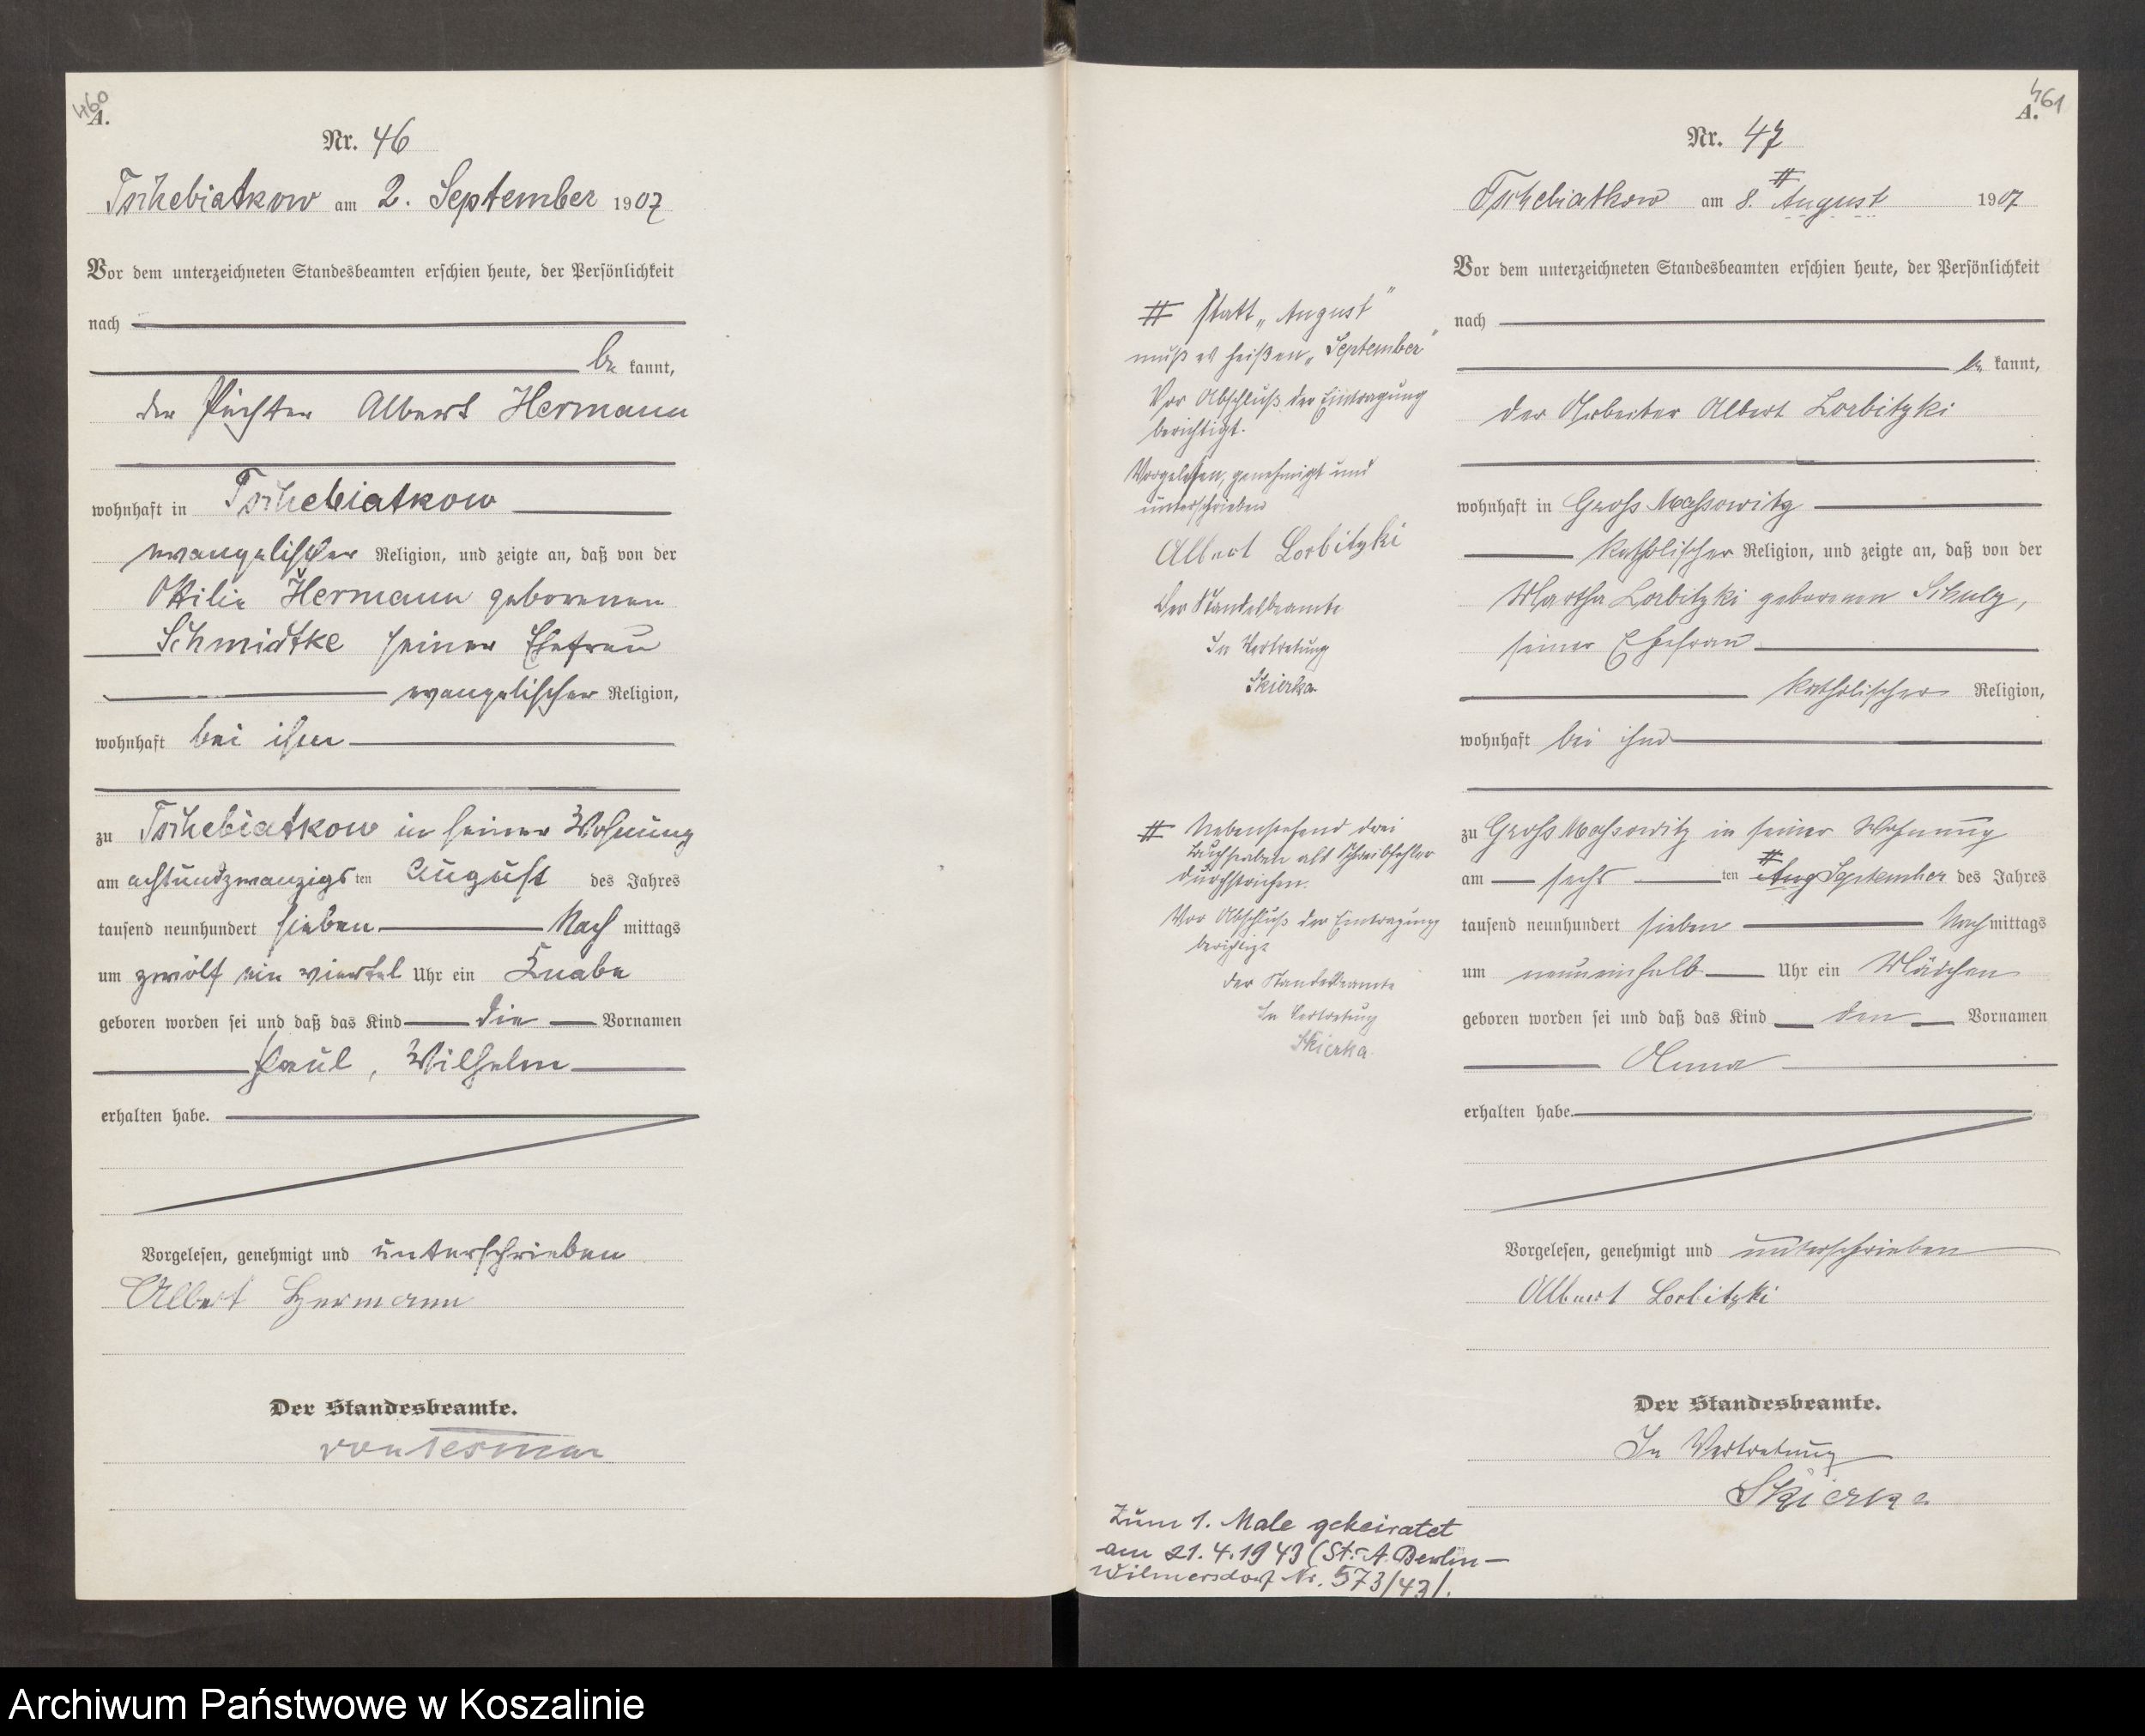 460
A.
Nr. 46
Tschebiatkow am 2. September 1907
Vor dem unterzeichneten Standesbeamten erschien heute, der Persönlichkeit
nach
be kannt,
der Pächter Albert Hermann
wohnhaft in Tschebiatkow
evangelischer Religion, und zeigte an, daß von der
Ottilie Hermann geborenen
Schmidtke seiner Ehefrau
evangelischer Religion,
wohnhaft bei ihm
zu Tschebiatkow in seiner Wohnung
am achtundzwanzigs ten August des Jahres
tausend neunhundert sieben Nach mittags
um zwölf ein viertel Uhr ein Knabe
geboren worden sei und daß das Kind die Vornamen
Paul, Wilhelm
erhalten habe.
Vorgelesen, genehmigt und unterschrieben
Albert Hermann
Der Standesbeamte.
von Tesmar
461
A.
Nr. 47
Tschebiatkow am 8. # August 1907
Vor dem unterzeichneten Standesbeamten erschien heute, der Persönlichkeit
nach
be kannt,
der Arbeiter Albert Lorbitzki
wohnhaft in Gross Massowitz
katholischer Religion, und zeigte an, daß von der
Martha Lorbitzki geborenen Schulz,
seiner Ehefrau
katholischer Religion,
wohnhaft bei ihm
zu Gross Massowitz in seiner Wohnung
am sechs ten # Aug September des Jahres
tausend neunhundert sieben Nach mittags
um neuneinhalb Uhr ein Mädchen
geboren worden sei und daß das Kind den Vornamen
Anna
erhalten habe.
Vorgelesen, genehmigt und unterschrieben
Albert Lorbitzki
Der Standesbeamte.
In Vertretung
Skierka
# statt „August"
muß es heißen „September"
Vor Abschluß der Eintragung
berichtigt.
Vorgelesen, genehmigt und
unterschrieben
Albert Lorbitzki
Der Standesbeamte
In Vertretung
Skierka
# Nebenstehend drei
Buchstaben als Schreibfehler
durchstrichen.
Vor Abschluß der Eintragung
berichtigt
der Standesbeamte
In Vertretung
Skierka
Zum 1. Male geheiratet
am 21.4.1943 (St.-A. Berlin-
Wilmersdorf Nr. 573/43/.
Archiwum Państwowe w Koszalinie